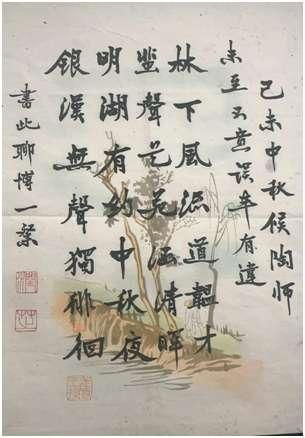 己未中秋候陶师
未至不意误车有遗
林下風流道韞才
聲花清暉
明湖有約中秋夜
銀漢無聲獨徘徊
書此聊博一粲